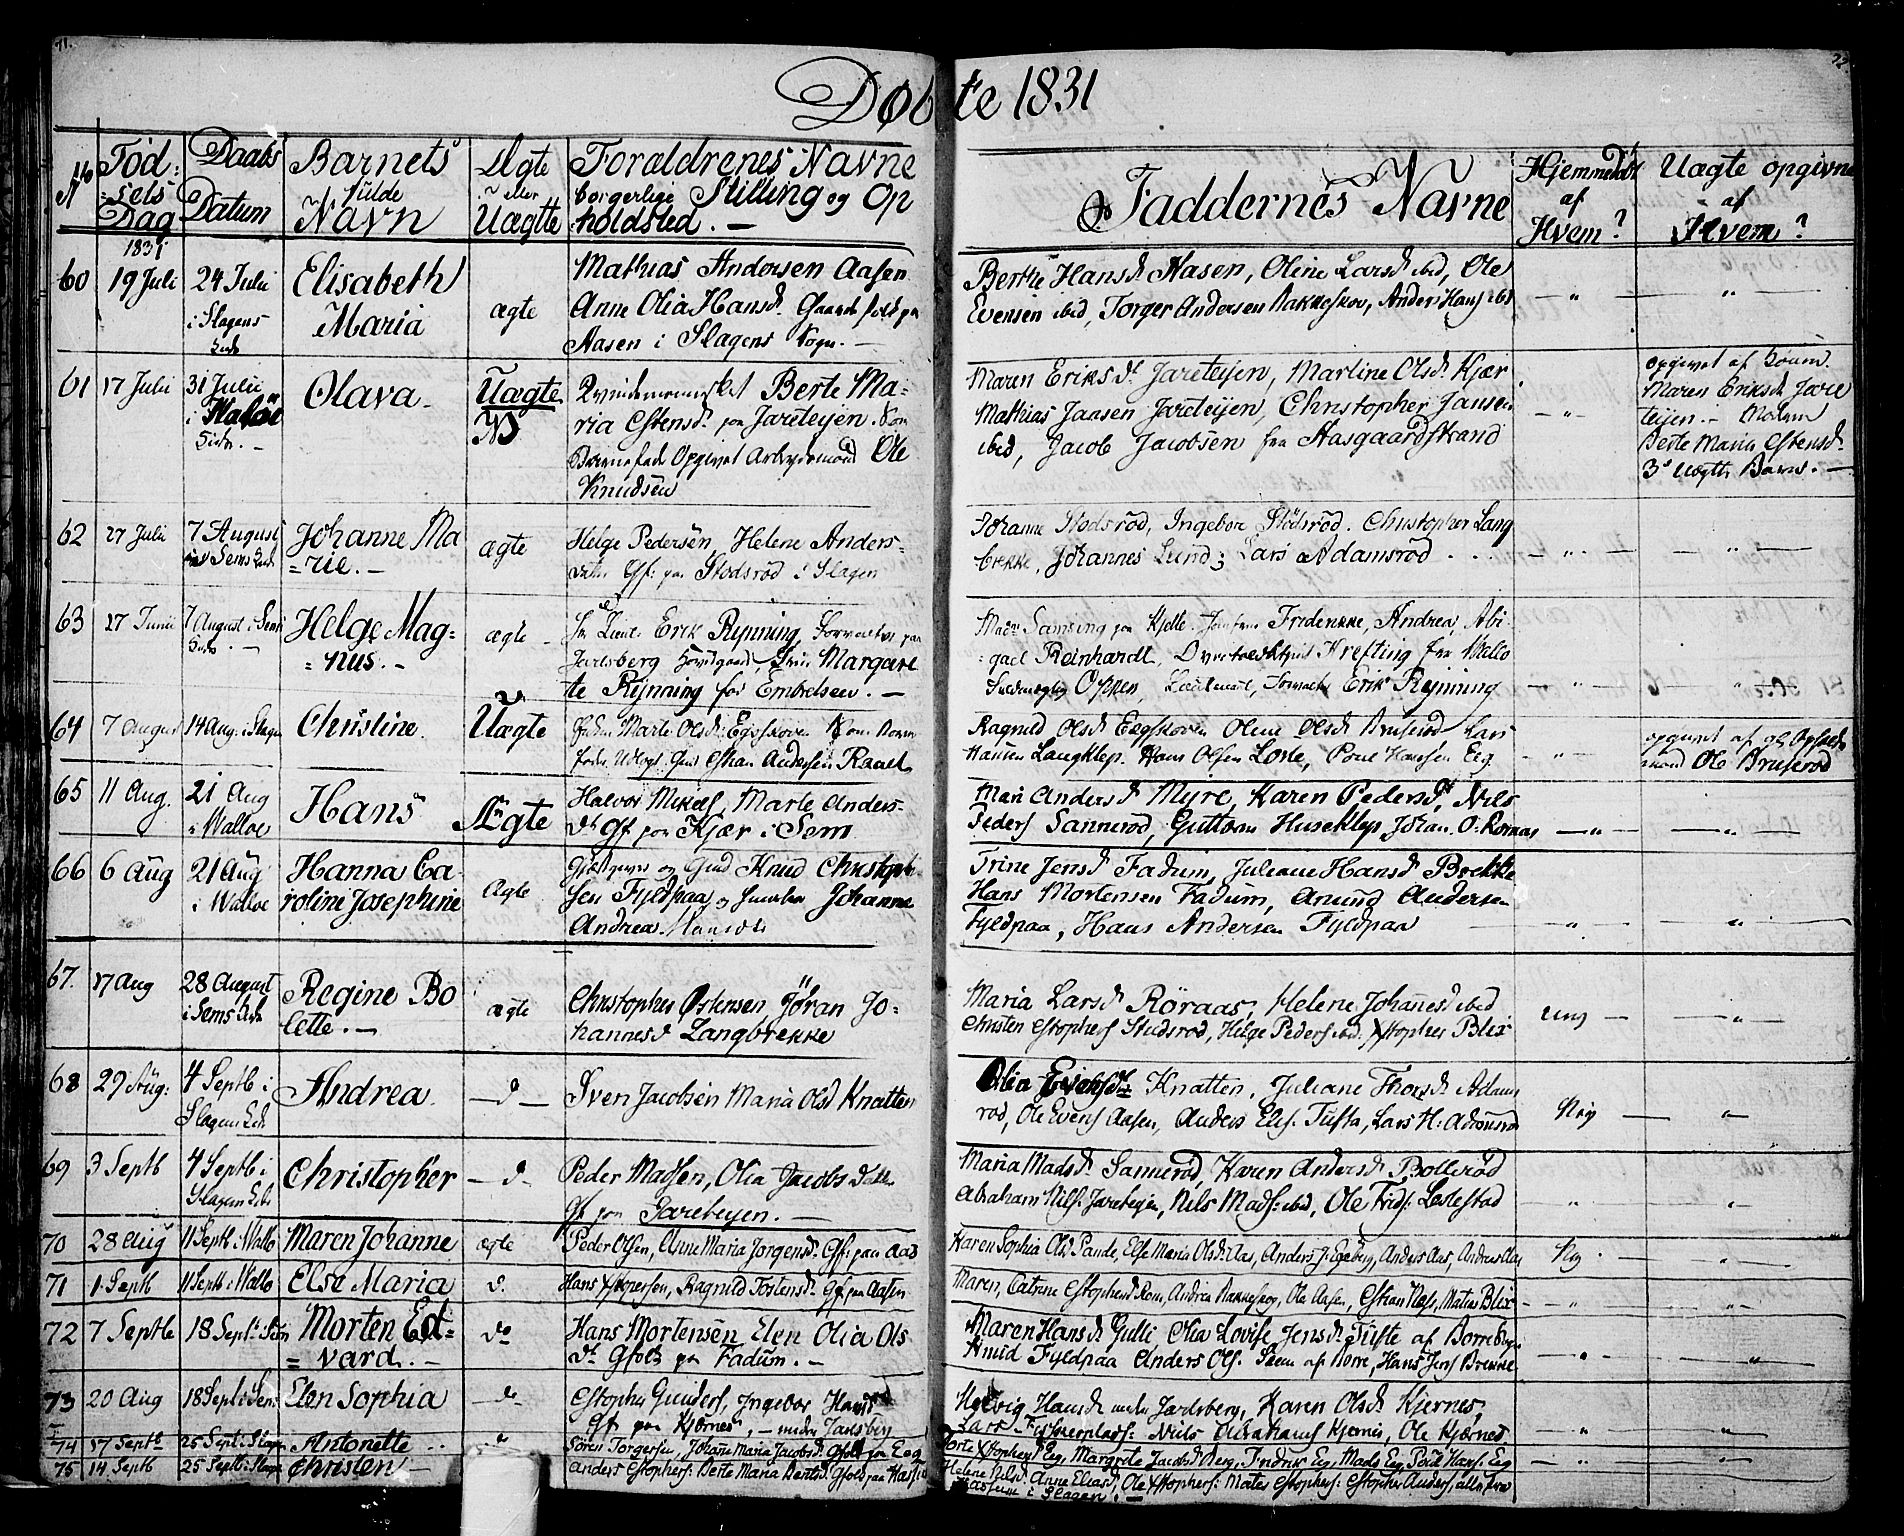 71.
72.
Døbte 1831
No
Fød=
=sels
Dag
Daabs
Datum
Barnets
fulde
Navn
Ægte
eller
Uægte
Forældrenes Navne
borgerlige Stilling og Op
holdsted. —
Faddernes Navne
Hjemmedøbt
af
Hvem?
Uægte opgivne
af
Hvem?
1831
60
19 Juli
24 Juli
i Slagens
Kirke
Elisabeth
Maria
ægte
Mathias Andersen Aasen
Anne Olia Hansd. Gaardfolk paa
Aasen i Slagens Sogn. —
Berthe Hansd Aasen, Oline Larsd ibid, Ole
Evensen ibid, Torger Andersen Bakkeskov, Anders Hans ibd
— " —
— " —
61
17 Juli
31 Juli
i Walöe
Kirke. —
Olava
Uægte
Qvindemennesket Berte Ma-
ria Estensd. paa Jareteyen. Som
Barnefader Opgivet Arbeidsmand Ole
Knudsen
Maren Eriksd. Jareteijen, Martine Olsd. Kjær
Mathias Jansen Jareteijen, Christopher Jansen
ibid, Jacob Jacobsen fra Aasgaardstrand
— " —
opgivet af
Maren Eriksd Jare
teijen. — Moderen
Berte Maria Estensd
3die Uægte Barn. —
62
27 Juli
7 August
Sems Kirke
Johanne Ma
=rie. —
ægte
Helge Pedersen, Helene Anders=
datter Gf: paa Stodsrød i Slagen
Johanne Stodsrød, Ingebor Stodsrød. Christopher Lang
brekke, Johannes Lund, Lars Adamsrød . . .
— " —
— " —
63
27 Junii
7 August i Sems
Kirke. —
Helge Mag=
=nus. —
ægte
Lieut: Erik Rynning, Forvalter paa
Jarlsberg Hovedgaard, Margare
te Rynning født Embretsen. —
Mad: Samsing paa Kjelle. Jomfrue Frederikke, Andrea, Abi
=gael Reinhardt, Krefting fra Wallø
Oppen, Lieutenant, Forvalter Erik Rynning
— " —
— " —
64
7 August
14 Aug. i Slagen
Christine.
Uægte
Marte Olsd: Eegskoven Som Barne
fader Udlagt Esthan Andersen Raaelt
Ragnild Olsd Eegskoven Olene Olsd Bruserød Lars
Hansen Langklep. Hans Olsen Lofte, Poul Hansen Eeg
"
opgivet af
mand Ole Bruserød
65
11 Aug.
21 Aug
i Walloe
Hans
Ægte
Halvor Mikels, Marte Anders-
dt Gf paa Kjær i Sem
Mari Andersd Myre, Karen Pedersd, Nils
Peders Sannerød, Guttorm Huseklep, Johan O: Rørnæs
— " —
— " —
66
6 Aug
21 Aug
i Walloe
Hanna Ca-
roline Josephine
ægte
Gjæstgiver og Knud Christoph
sen Fyldpaa og Johanne
Andrea
Trine Jensd Fadum, Juliane Hansd Brekke
Hans Mortensen Fadum, Amund Andersen
Fyldpaa, Hans Andersen Fyldpaa
— " —
"
67.
17 Aug
28 August
i Sems Kirke
Regine Bo
lette. —
ægte
Christopher Østensen, Jöran Jo-
hannesd Langbrekke
Maria Larsd Röraas, Helene Johannesd ibid
Christen Estophers Studsrød, Helge Peders ibid. Xstopher Blix
— " —
68
29 Aug:
4 Septb i
Slagens Kirke
Andrea
— d —
Sven Jacobsen Maria Olsd Knatten
Olia Knatten, Juliane Thorsd Adams
rød, Ole Evens Aasen, Anders Elis. Tufta, Lars H: Adamsrød
Nei
"
69
3 Septb
4 Septb i
Slagens Kirke
Christopher
— d —
Peder Madsen, Olia Jacobsdatter
Gf paa Jareteyen. —
Maria Madsd Sannerød, Karen Andersd Bollerød
Abraham Nils: Jareteyen, Nils Mads: ibid, Ole Frids: Lostestad
"
"
70
28 Aug
11 Septb i Wallø
Maren Johanne
ægte
Peder Olsen, Anne Maria Jorgensd. Gf: paa Aas
Karen Sophia Olsd Pande, Else Maria Olsd: Aas, Anders J: Egeberg, Anders Aas, Andreas Aas
Nei
"
71
1 Septb
11 Septb i Wallø
Else Maria
d.
Hans Xstophersen, Ragnild Tostensd. Gf paa Aasen
Maren, Catrine Estophersd Rom, Andrea Bakkeskog, Ole Aasen, Esthan Næs, Matias Blix
— " —
— " —
72
7 Septb
18 Sept: Sem
Morten Ed=
=vard. —
do
Hans Mortensen Elen Olia Ols
dt Gfolk paa Fadum. —
Maren Hansd Gulli Olia Lovise Jensd Tufte af Borre
Knud Fyldpaa Anders Ols. Skeen af Borre, Hans Jens Brekke
— " —
"
73
20 Aug
18 Sept i Sem
Elen Sophia
— d —
Estopher Gunders, Ingebor Hansd
Gf paa Kjærnes, — under Jarlsberg
Hedvig Hansd under Jarlsberg, Karen Olsd Kjernes,
Lars Fiskerplads: Niils Abrahams Kjernes, Ole Kjærnes
— " —
"
74
17 Septb
25 Sept: Slagen
Antonette
Sören Torgersen, Johane Maria Jacobsd. Gfolk paa Eeg
Dorte Xstophersd Eeg, Margrete Jacobsd Berg, Fredrik Eeg, Mads Eeg Peder Hans: Eeg
— " —
"
75
14 Septb
25 Septb: Slagen
Christen —
Anders Estophers: Berte Maria Bentsd. Gfolk paa
Helene Nilsd. Anne Eliasd, Ole Xstophers: Mates Estophers: Estopher Anders, alle fra
i Slagen. —